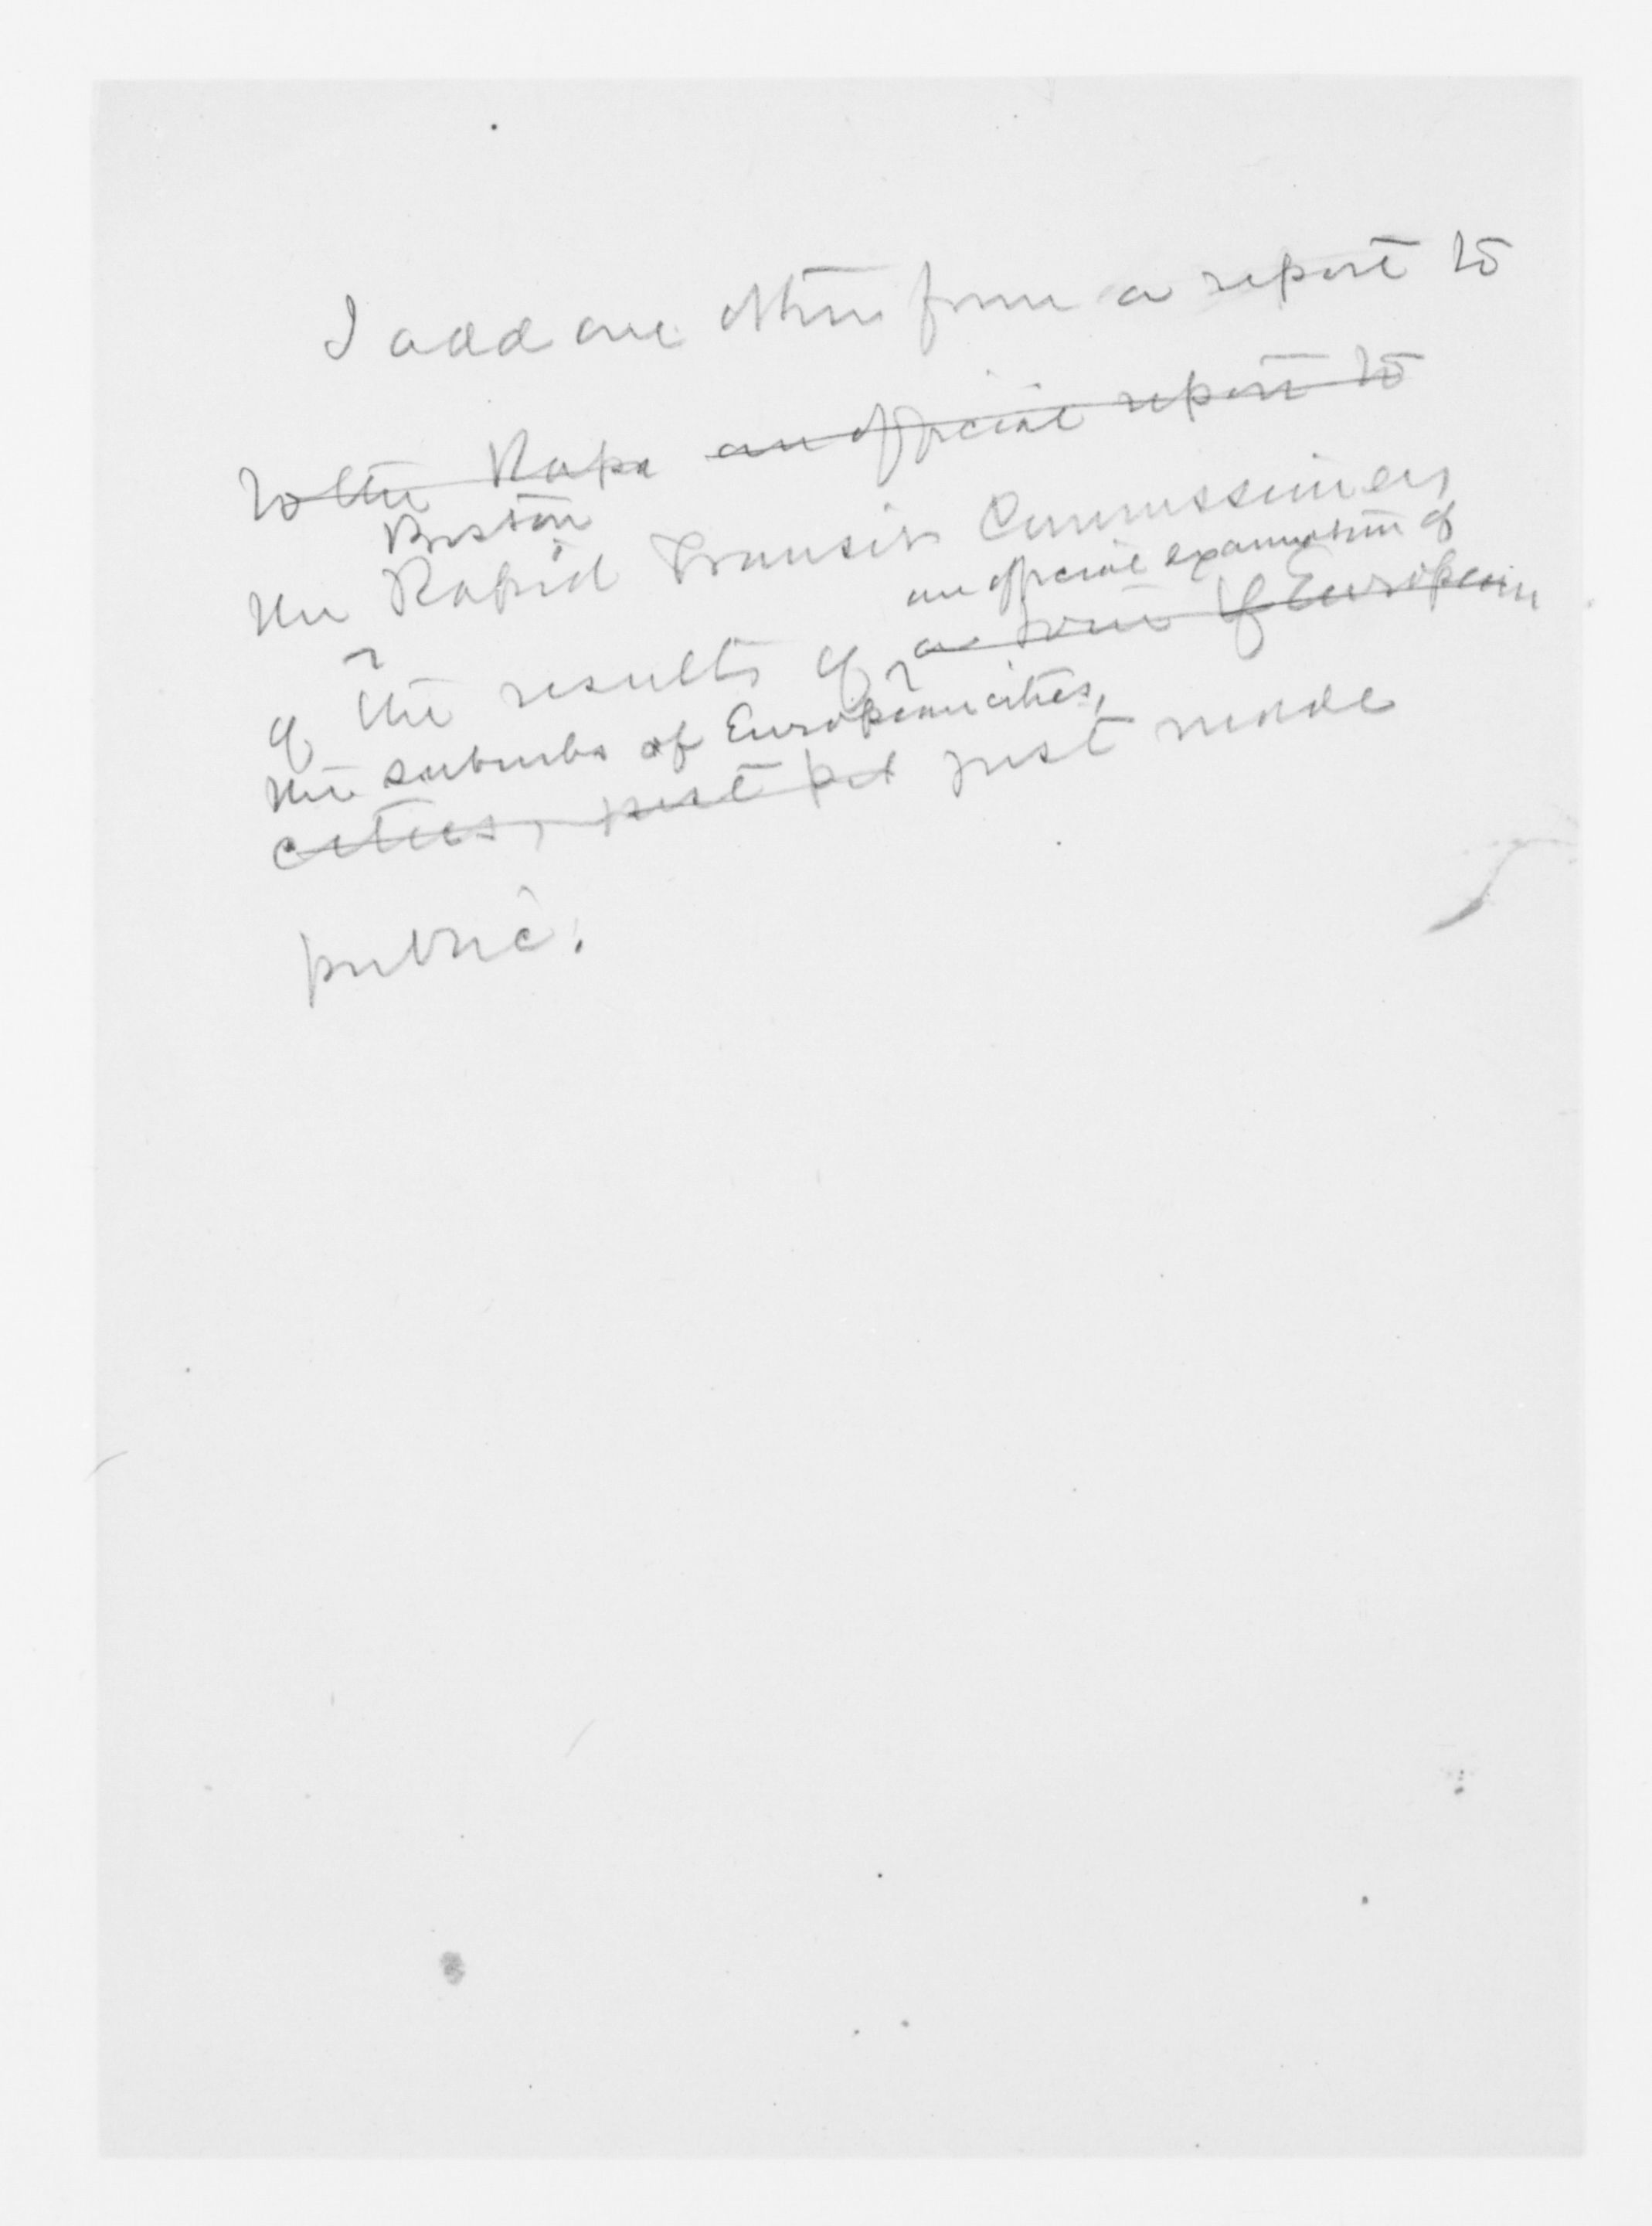 I add one other from a report to
to the Rapa an official report to
Boston
the Rapid Transit Commissioners
an official examination of
of the results of a tour of European
the suburbs of European cities,
cities, just pub just made
public.